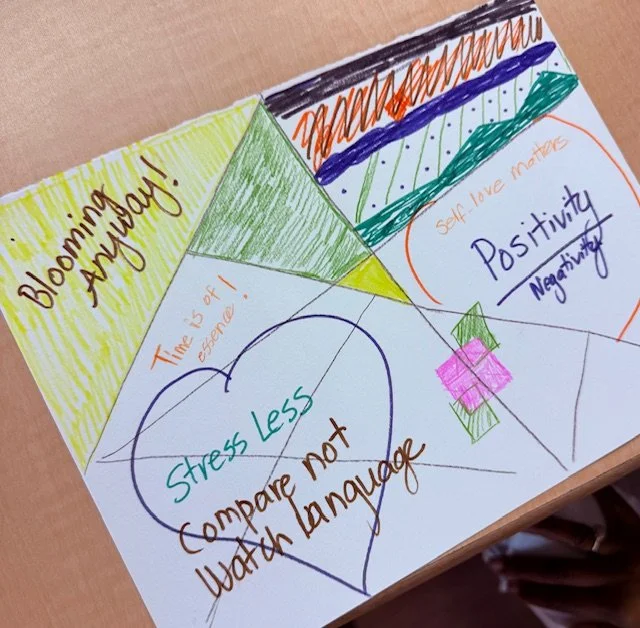 Blooming
Anyway!
Time is of
essence!
self-love matters
Positivity
Negativity
Stress Less
Compare not
Watch Language